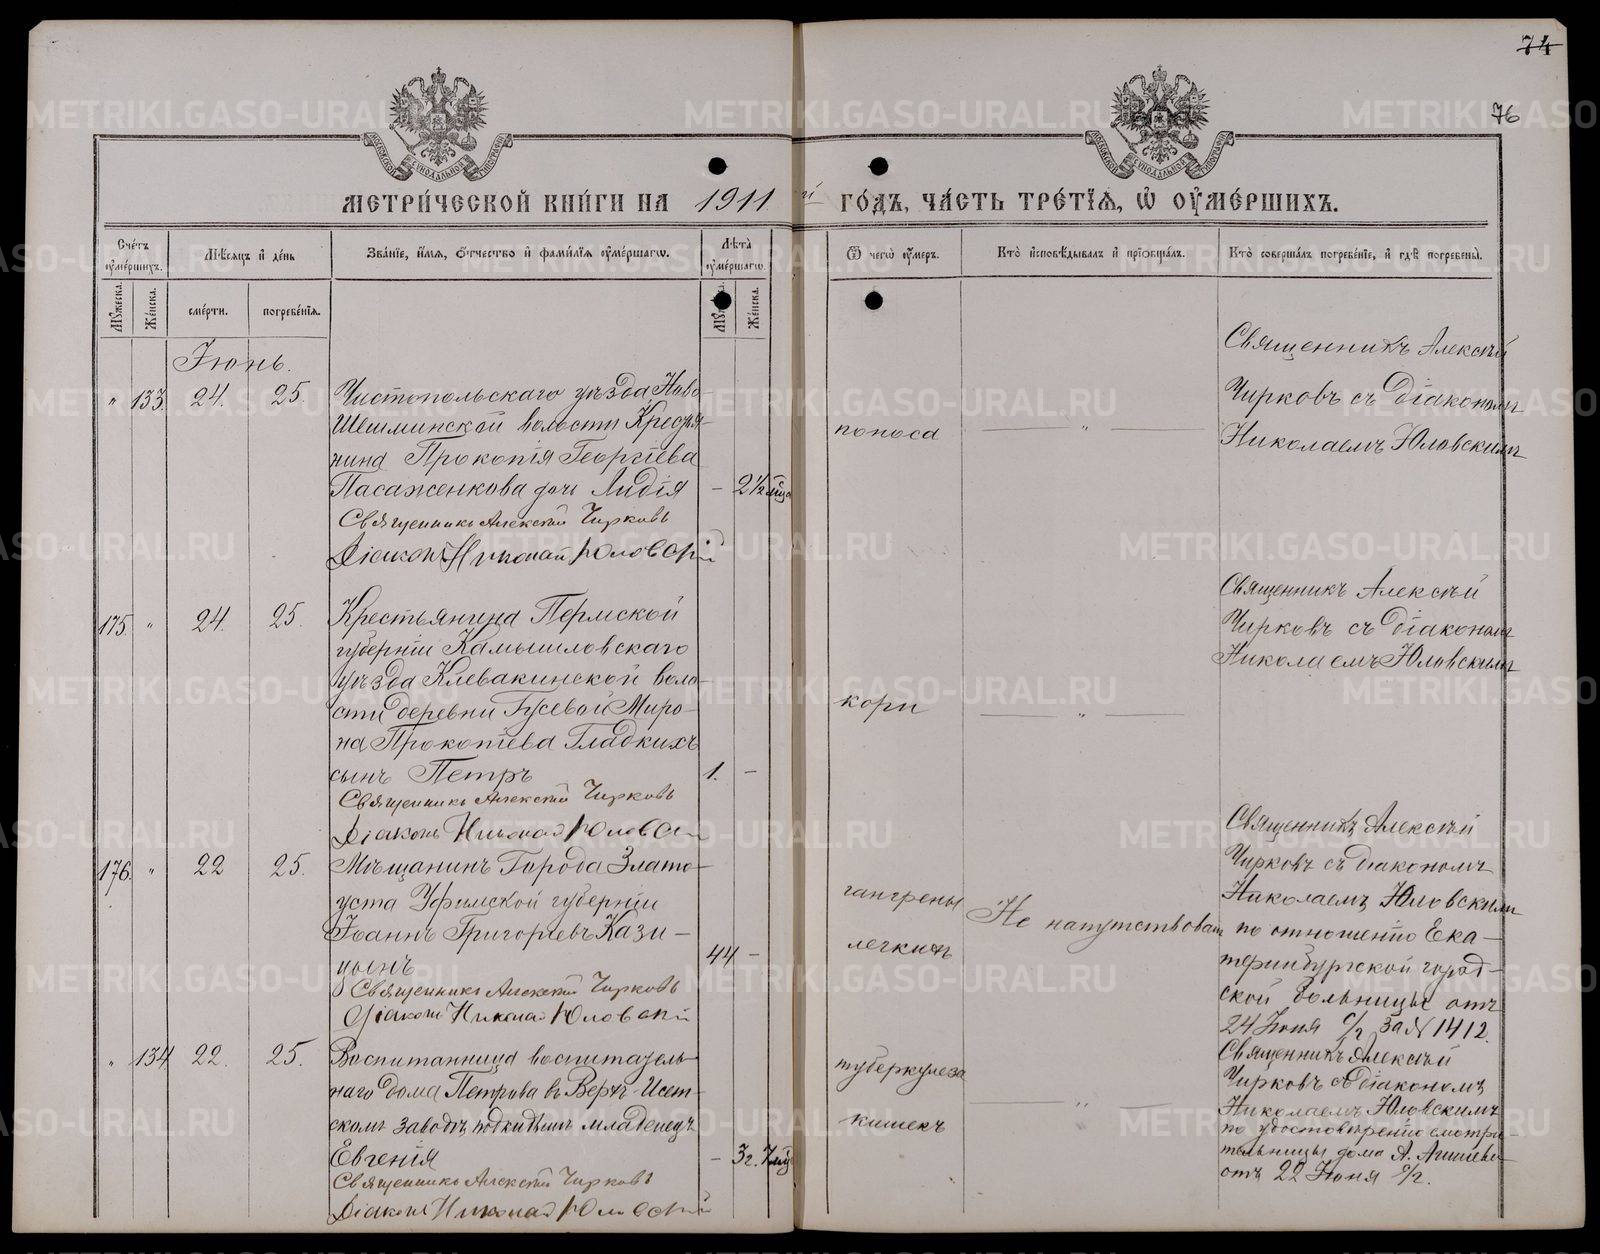 74
76
МЕТРИ́ЧЕСКОЙ КНИ́ГИ НА 1911 й ГО́ДЪ, ЧА́СТЬ ТРЕ́ТІѦ, Ѡ ОУ҆МЕ́РШИХЪ.
Сче́тъ оу҆ме́ршихъ.
Мѣ́сяцъ и҆ де́нь
Зва́ніе, и҆́мя, ѻ҆́тчество и҆ фами́лія оу҆ме́ршагѡ.
Лѣ́та оу҆ме́ршагѡ.
Ѿ чегѡ̀ оу҆́меръ.
Кто̀ и҆сповѣ́дывалъ и҆ прїѡбща́лъ.
Кто̀ соверша́лъ погребе́ніе, и҆ гдѣ̀ погребены̀.
Мꙋ́жеска.
Же́нска.
сме́рти.
погребе́нїя.
Мꙋ́жеска.
Же́нска.
Іюнь.
" 133 24. 25.
Чистопольскаго уѣзда Ново-
Шешминской волости Крестья-
нина Прокопія Георгіева
Пасаженкова дочь Лидія
- 2 1/2 мѣс.
Священникъ Алексѣй Чирковъ
Діаконъ Николай Юловскій
поноса
— " —
Священникъ Алексѣй
Чирковъ съ діакономъ
Николаемъ Юловскимъ
175. " 24. 25.
Крестьянина Пермской
губерніи Камышловскаго
уѣзда Клевакинской воло-
сти деревни Гусевой Миро-
на Прокопіева Гладкихъ
сынъ Петръ
1. -
Священникъ Алексѣй Чирковъ
Діаконъ Николай Юловскій
кори
— " —
Священникъ Алексѣй
Чирковъ съ діакономъ
Николаемъ Юловскимъ
176. " 22 25.
Мѣщанинъ Города Злато-
уста Уфимской губерніи
Іоаннъ Григорьевъ Кази-
цынъ
44 -
Священникъ Алексѣй Чирковъ
Діаконъ Николай Юловскій
гангрены
легкихъ
Не напутствованъ
Священникъ Алексѣй
Чирковъ съ діакономъ
Николаемъ Юловскимъ
по отношенію Ека-
теринбургской город-
ской больницы отъ
24 Іюня с/г за № 1412.
" 134 22. 25.
Воспитанница воспитатель-
наго дома Петрова въ Верхъ-Исет-
скомъ заводѣ, подкидышъ младенецъ
Евгенія
- 3 г. 7 мѣс.
Священникъ Алексѣй Чирковъ
Діаконъ Николай Юловскій
туберкулеза
кишекъ
— " —
Священникъ Алексѣй
Чирковъ съ діакономъ
Николаемъ Юловскимъ
по удостовѣренію смотри-
тельницы дома А.
отъ 22 Іюня с/г.
METRIKI.GASO-URAL.RU